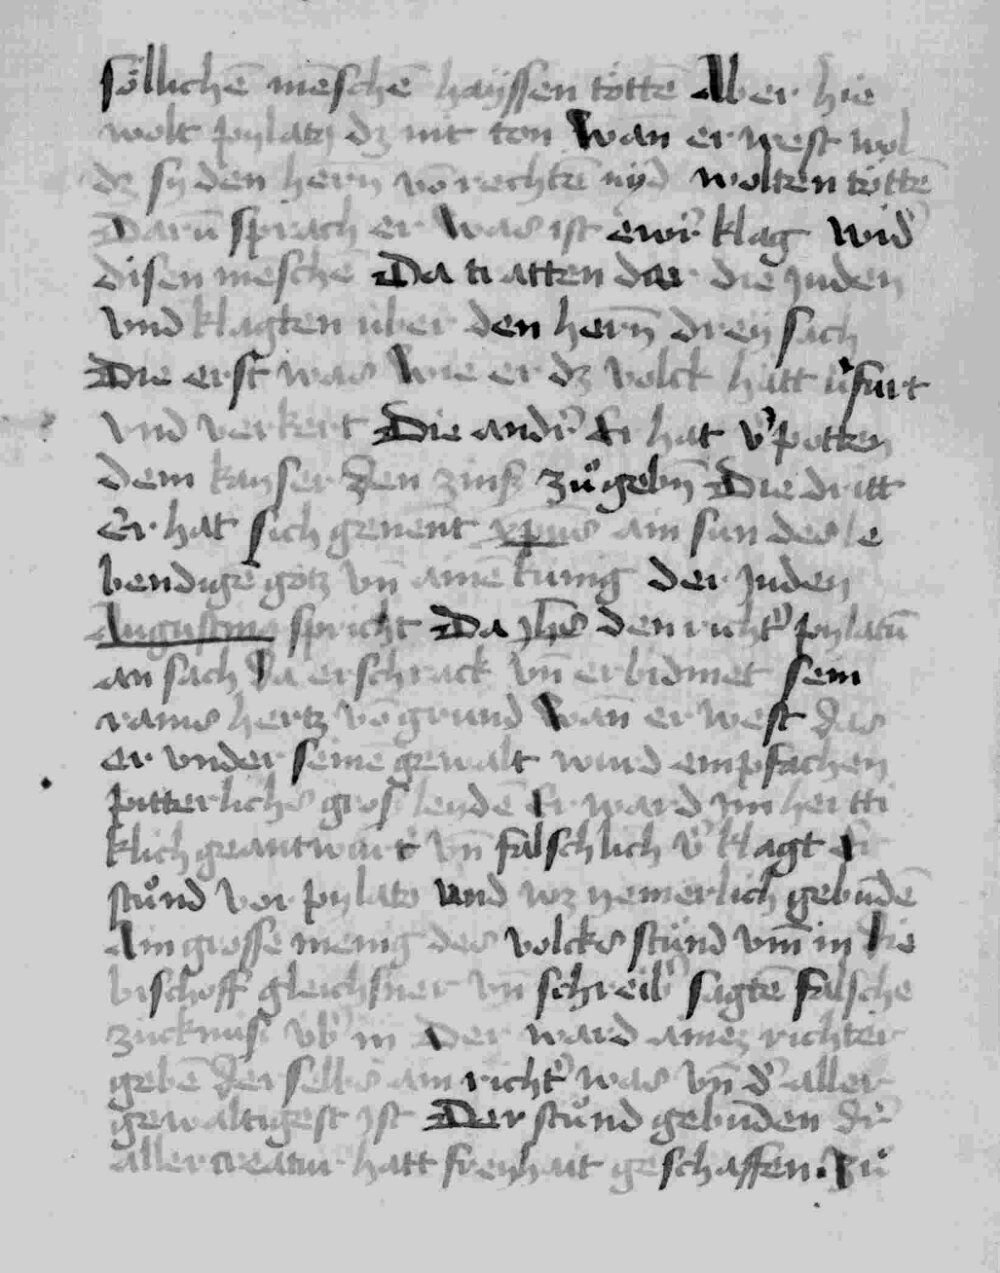 söllichē mēschē haÿssen töttē Aber hie
wolt pylatz dz nit ton Wan̄ er west wol
dz sÿ den hern̄ vō rechtē nÿd wolten töttē
Darū sprach er Was ist ewr̓ klag wid̓
disen mēschē Da tratten dar die Juden
Vnd klagten über den hern̄ dreÿ sach
Die erst was Wie er dz volck hatt v̓fürt
Vnd verkert Die andr̓ Er hat v̓potten
dem kayser den zinß zů gebn̄ Die dritt
Er hat sich genent xpūs ain sun des le
bendigē gotz vn̄ ainē künig der Juden
Augustinus spricht Da jhēs den richt̓ pylatū
an sach Da erschrack vn̄ erbidmet sein
rains hertz vō grund Wan̄ er west das
er vnder seinē gewalt wurd empfachen
pitterlichs groß leydē Er ward jm hertti
klich geantwürt vn̄ falschlich v̓klagt Er
stůnd vor pylato vnd wz yemerlich gebūdē
Ain grosse menig des volcks stůnd vm̄ in Die
bischoff gleichsner vn̄ schreib̓ sagtē falsche
zücknuß üb̓ in Der ward ainez richter
gebē der selbs ain richt̓ was vn̄ d̓ aller
gewaltigest ist Der stůnd gebunden dr̓
aller creatur hatt freyhait geschaffen. Zů